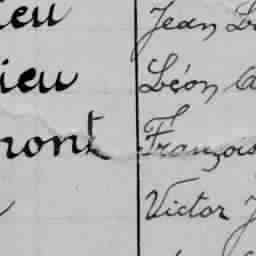 ieu Jean
ieu Léon
mont François
Victor J